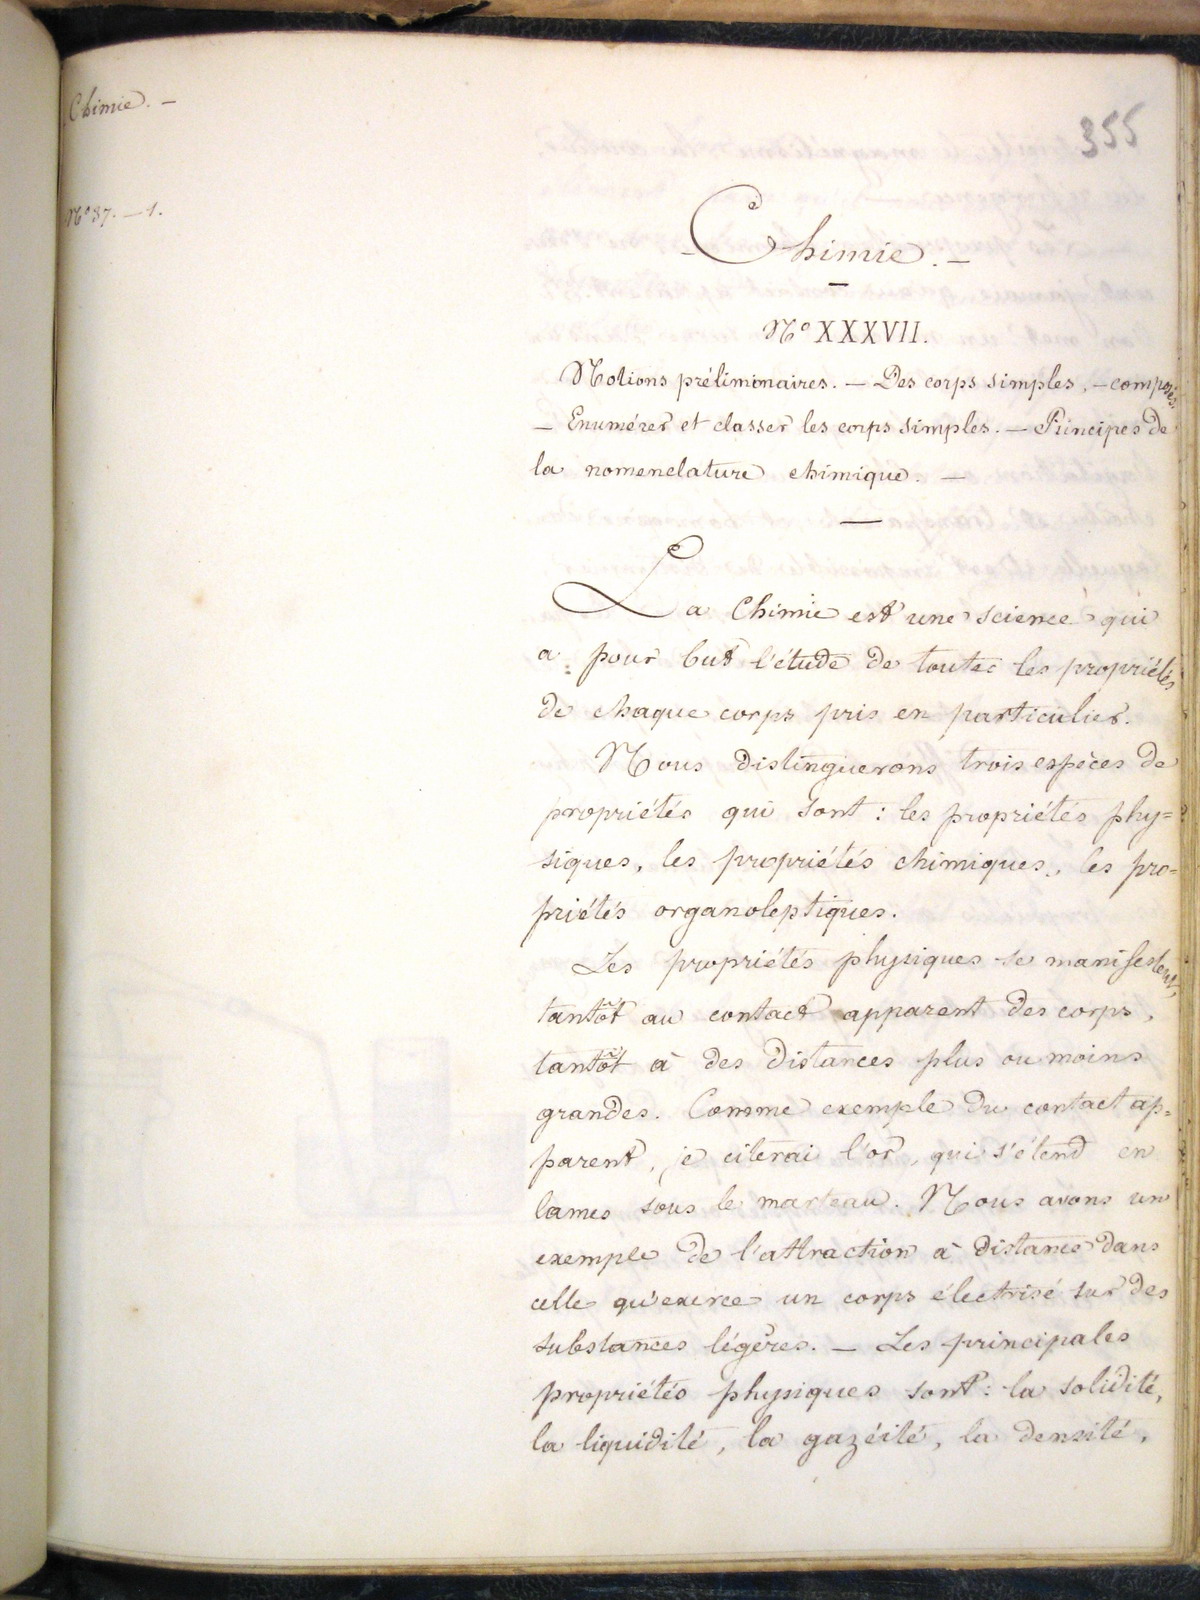 Chimie. —
355
N° 37. — 1.
Chimie. —
N° XXXVII.
Notions préliminaires. — Des corps simples, — composés.
— Enumérer et classer les corps simples. — Principes de
la nomenclature chimique. —
La Chimie est une science qui
a pour but l'étude de toutes les propriétés
de chaque corps pris en particulier.
Nous distinguerons trois espèces de
propriétés qui sont : les propriétés phy=
siques, les propriétés chimiques, les pro=
priétés organoleptiques.
Les propriétés physiques se manifestent,
tantôt au contact apparent des corps,
tantôt à des distances plus ou moins
grandes. Comme exemple du contact ap=
parent, je citerai l'or, qui s'étend en
lames sous le marteau. Nous avons un
exemple de l'attraction à distance dans
celle qu'exerce un corps électrisé sur des
substances légères. — Les principales
propriétés physiques sont : la solidité,
la liquidité, la gazéité, la densité,